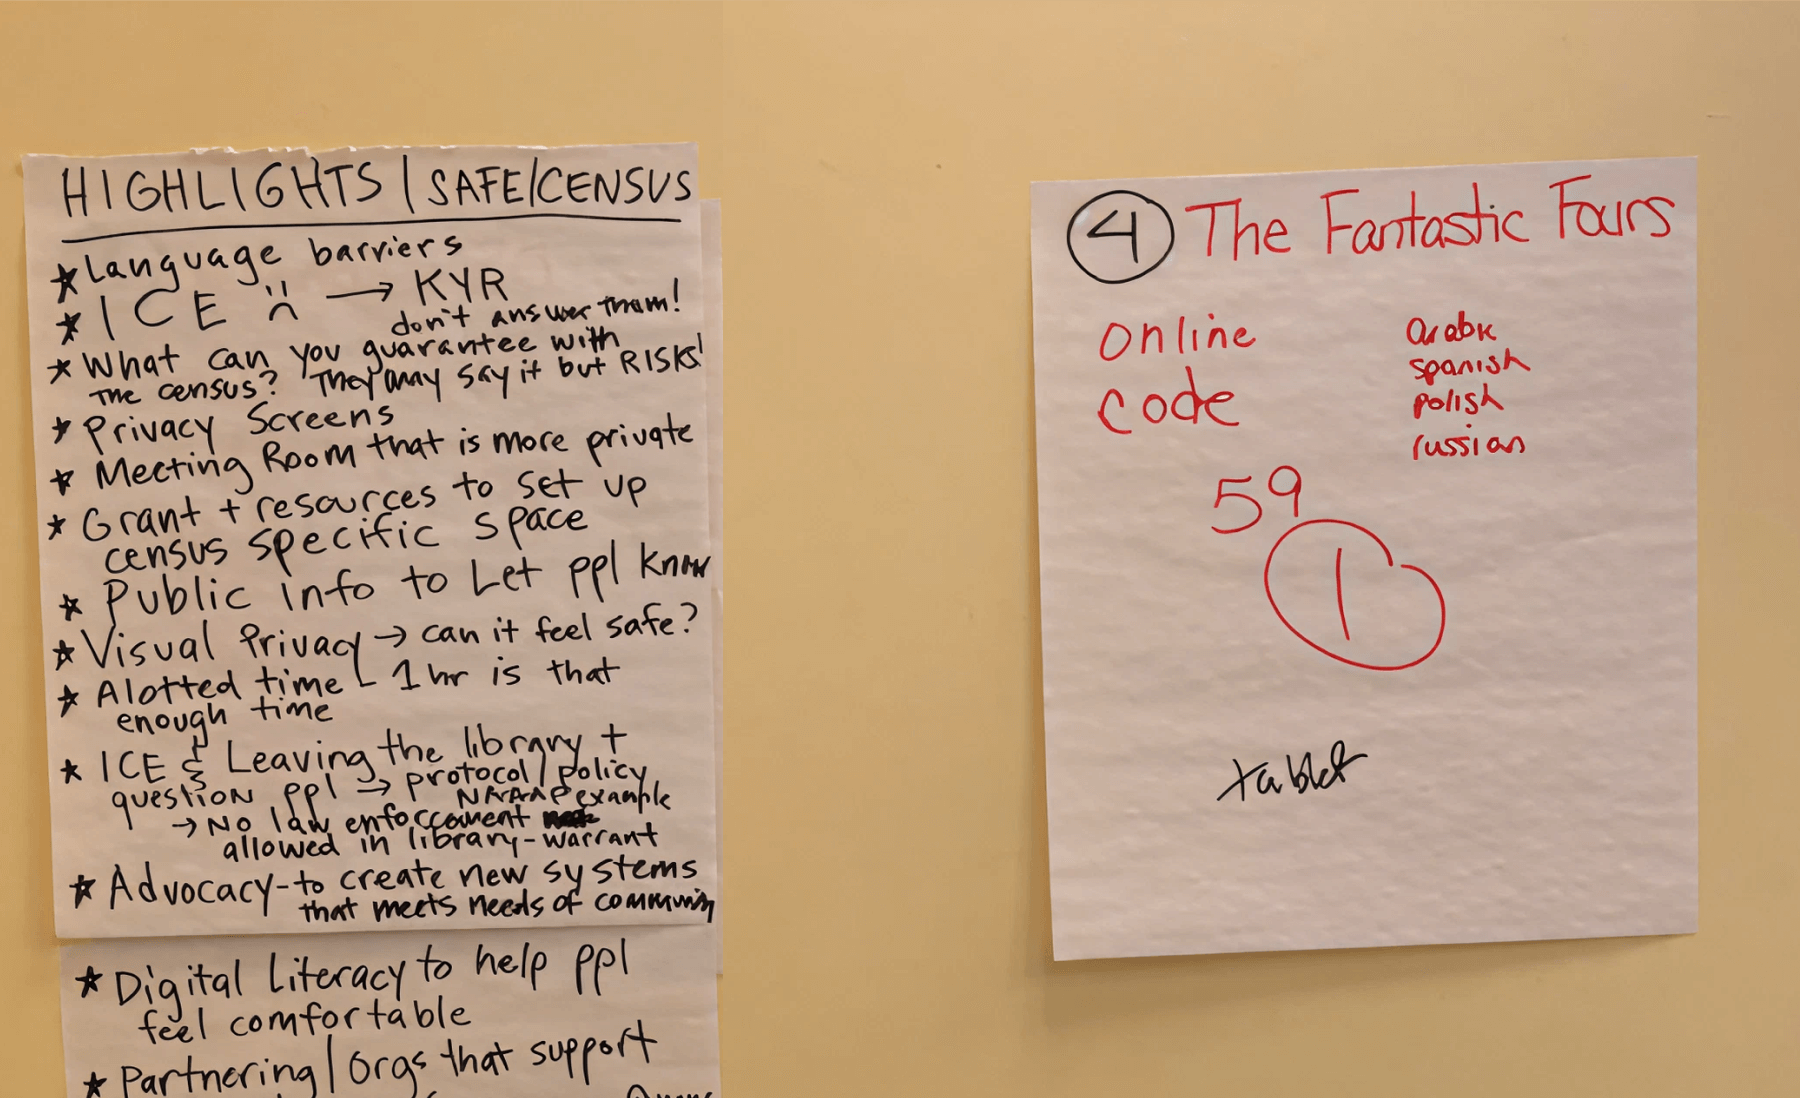 HIGHLIGHTS | SAFE/CENSUS
★ Language barriers
★ ICE ⍨ → KYR
don't answer them!
★ What can you guarantee with
the census? They may say it but RISKS!
★ Privacy Screens
★ Meeting Room that is more private
★ Grant + resources to set up
census specific space
★ Public Info to Let ppl know
★ Visual Privacy → can it feel safe?
★ Alotted time - 1 hr is that
enough time
★ ICE & Leaving the library +
question ppl → protocol/policy
example
→ No law enforcement
allowed in library - warrant
★ Advocacy - to create new systems
that meets needs of community
★ Digital Literacy to help ppl
feel comfortable
★ Partnering/Orgs that support
4 The Fantastic Fours
online
code
arabic
spanish
polish
russian
59
1
tablet